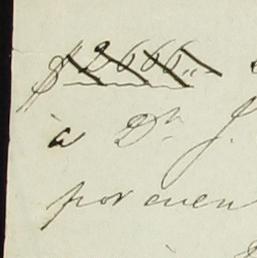 $2666,,
à Dn J.
por cuen